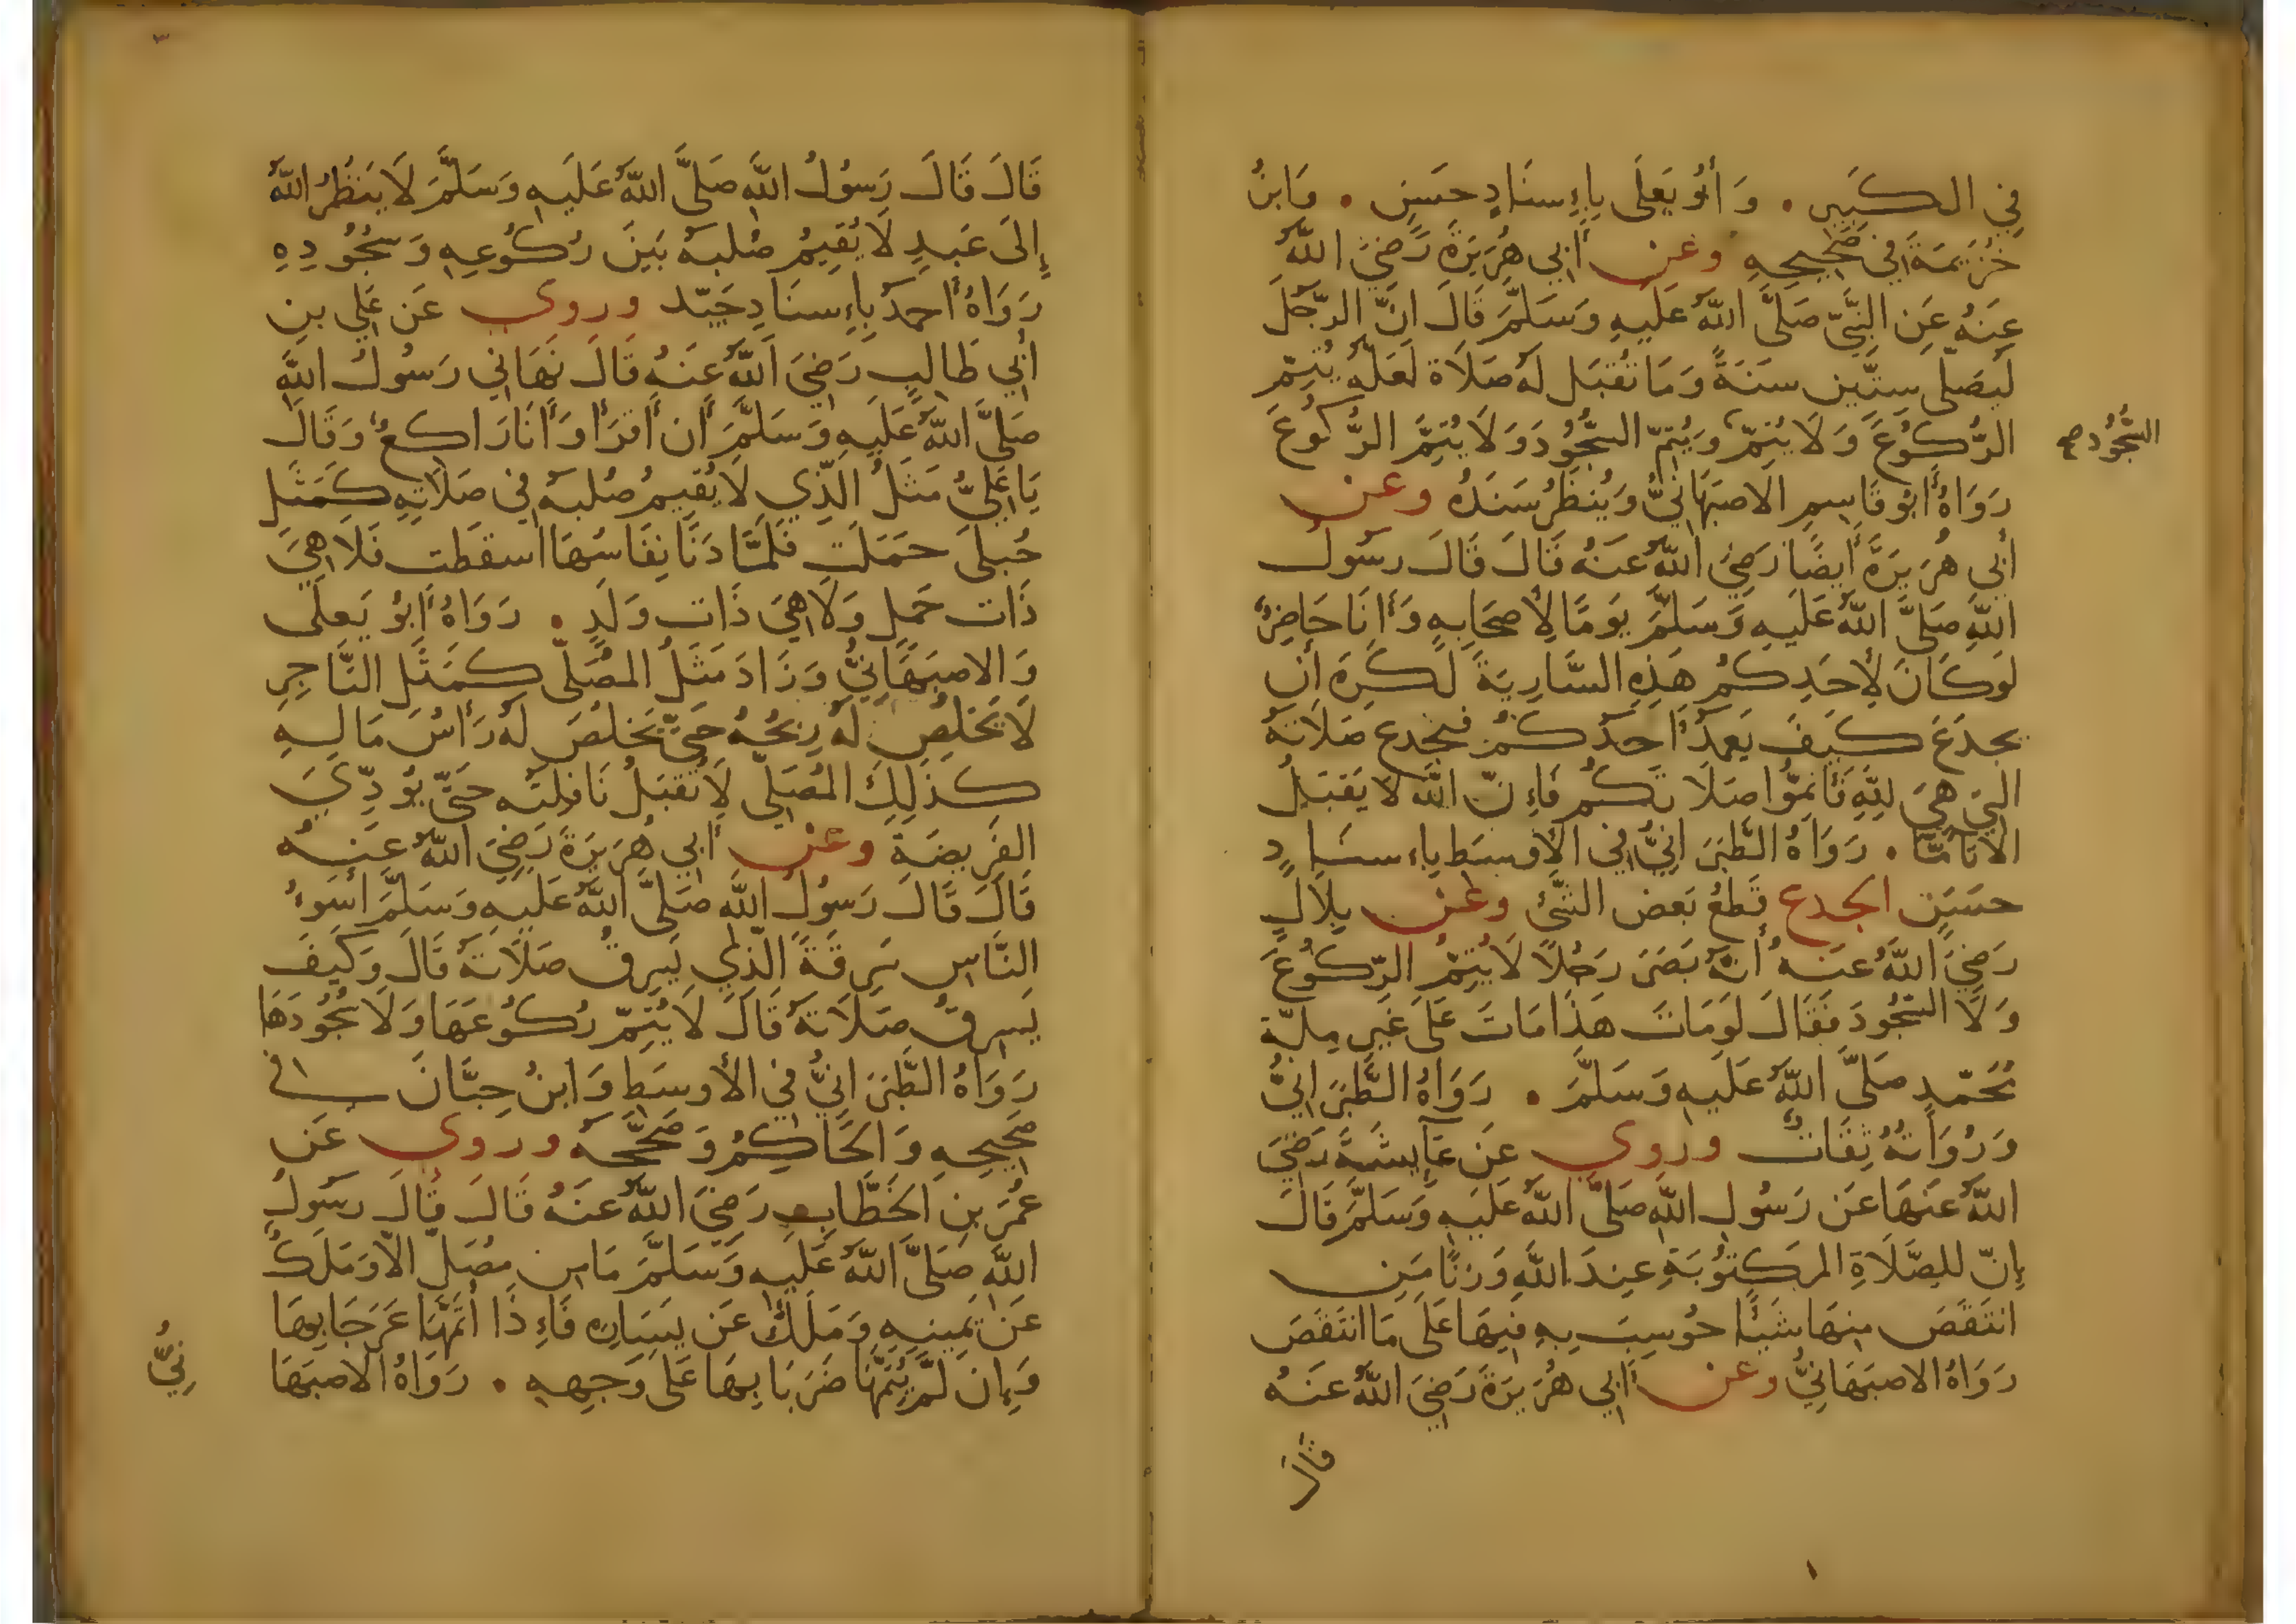 فِي الكَبِيرِ . وَأَبُو يَعلَى بِإِسنَادٍ حَسَنٍ . وَابنُ
خُزَيمَةَ فِي صَحِيحِهِ وعن أَبِي هُرَيرَةَ رَضِيَ اللَّهُ
عَنهُ عَنِ النَّبِيِّ صَلَّى اللَّهُ عَلَيهِ وَسَلَّمَ قَالَ اِنَّ الرَّجُلَ
لَيُصَلِّى سِتِّين سَنَةً وَمَا تُقبَل لَهُ صَلَاة لَعَلَّهُ يُتِمّ
الرُّكُوعَ وَلَا يُتِمّ وَيُتِمّ السُّجُودَ وَلَا يُتِمَّ الرُّكُوعَ
السُّجُودَ صح
رَوَاهُ أَبُو قَاسِمِ الاصبَهَانِيُّ وَيُنظَرُ سَنَدُه وعن
أَبِي هُرَيرَةَ أَيضًا رَضِيَ اللَّهُ عَنهُ قَالَ قَالَ رَسُولُ
اللَّهِ صَلَّى اللَّهُ عَلَيهِ وَسَلَّمَ يَومًا لِأَصحَابِهِ وَأَنَا حَاضِرٌ
لَو كَانَ لِأَحَدِكُم هَذِهِ السَّارِيَةَ لَكَرِهَ أَن
يجدَعَ كَيفَ يَعمِدُ أَحَدُكُم فيجدع صَلَاتَهُ
الَّتِي هِيَ لِلَّهِ فَأَتِمُّوا صَلَا تَكُم فَإِنّ اللَّهَ لَا يَقبَلُ
الا تَامًّا . رَوَاهُ الطَّبَرَانِيُّ فِي الأَوسَط بِإِسنَادٍ
حَسَنٍ الجدع قَطعُ بَعض الشَّئ وعن بِلَالٍ
رَضِيَ اللَّهُ عَنهُ أَنَّهُ بَصَرَ رَجُلًا لَا يُتِمُّ الرّكُوعَ
وَلَا السُّجُودَ فَقَالَ لَو مَاتَ هَذَا مَاتَ عَلَى غَيرِ مِلَّة
مُحَمّدٍ صَلَّى اللَّهُ عَلَيهِ وَسَلَّمَ . رَوَاهُ الطَّبَرَانِيُّ
وَرُوَاتُهُ ثِقَاتٌ وروي عَن عَايِشَةَ رَضِيَ
اللَّهُ عَنهَا عَن رَسُولِ اللَّهِ صَلَّى اللَّهُ عَلَيهِ وَسَلَّمَ قَالَ
إِنّ لِلصَّلَاةِ المَكتُوبَةِ عِندَ اللَّهِ وَزنًا مَن
انتَقَصَ مِنهَا شَيئًا حُوسِبَ بِهِ فِيهَا عَلَى مَا انتَقَصَ
رَوَاهُ الاصبَهَانِيُّ وعن أَبِي هُرَيرَةَ رَضِيَ اللَّهُ عَنهُ
قَالَ
قَالَ قَالَ رَسُولُ اللَّهِ صَلَّى اللَّهُ عَلَيهِ وَسَلَّمَ لَا يَنظُرُ اللَّهُ
إِلَى عَبدٍ لَا يُقِيمُ صُلبَهُ بَينَ رُكُوعِهِ وَسُجُودِهِ
رَوَاهُ أَحمَدُ بِإِسنَادٍ جَيّد وروي عَن عَلِي بنِ
أَبِي طَالِبٍ رَضِيَ اللَّهُ عَنهُ قَالَ نَهَانِي رَسُولُ اللَّهِ
صَلَّى اللَّهُ عَلَيهِ وَسَلَّمَ أَن أَقرَأ وَأَنَا رَاكِعٌ وَقَالَ
يَا عَلِيُّ مَثَلُ الَّذِي لَا يُقِيمُ صُلبَهُ فِي صَلَاتِهِ كَمَثَلِ
حُبلَى حَمَلَت فَلَمَّا دَنَا نِفَاسُهَا اَسقَطَت فَلَا هِيَ
ذَات حَملٍ وَلَا هِيَ ذَات وَلَدٍ . رَوَاهُ أَبُو يَعلَى
وَالاصبَهَانِيُّ وَزَادَ مَثَلُ المُصَلّى كَمَثَلِ التَّاجِرِ
لَا يَخلُصُ لَهُ رِبحُهُ حَتَّى يَخلُصَ لَهُ رَأسُ مَالِهِ
كَذَلِكَ المُصَلِّي لَا تُقبَلُ نَافِلَتُه حَتَّى يُؤدِّيَ
الفَرِيضَةِ وعن أَبِي هُرَيرَةَ رَضِيَ اللَّهُ عَنهُ
قَالَ قَالَ رَسُولُ اللَّهِ صَلَّى اللَّهُ عَلَيهِ وَسَلَّمَ اَسوَءُ
النَّاسِ سَرِقَةً الَّذِي يَسرِقُ صَلَاتَهُ قَالَ وَكَيفَ
يَسرِقُ صَلَاتَهُ قَالَ لَا يُتِمّ رُكُوعَهَا وَلَا سُجُودَهَا
رَوَاهُ الطَّبَرَانِيُّ فِي الأَوسَطِ وَابنُ حِبَّانَ في
صَحِيحِهِ وَالحَاكِمُ وَصَحَّحَهُ وروي عَن
عُمَرَ بنِ الخَطَّابِ رَضِيَ اللَّهُ عَنهُ قَالَ قَالَ رَسُولُ
اللَّهِ صَلَّى اللَّهُ عَلَيهِ وَسَلَّمَ مَا مِن مُصَلٍّ الّا وَمَلَكٌ
عَن يَمِينِهِ وَمَلَكٌ عَن يَسَارِهِ فَإِذَا أَتَمَّهَا عَرَجَا بِهَا
وَإِن لَم يُتِمَّهَا ضَرَبَا بِهَا عَلَى وَجهِهِ . رَوَاهُ الاصبَهَا
نِيُّ